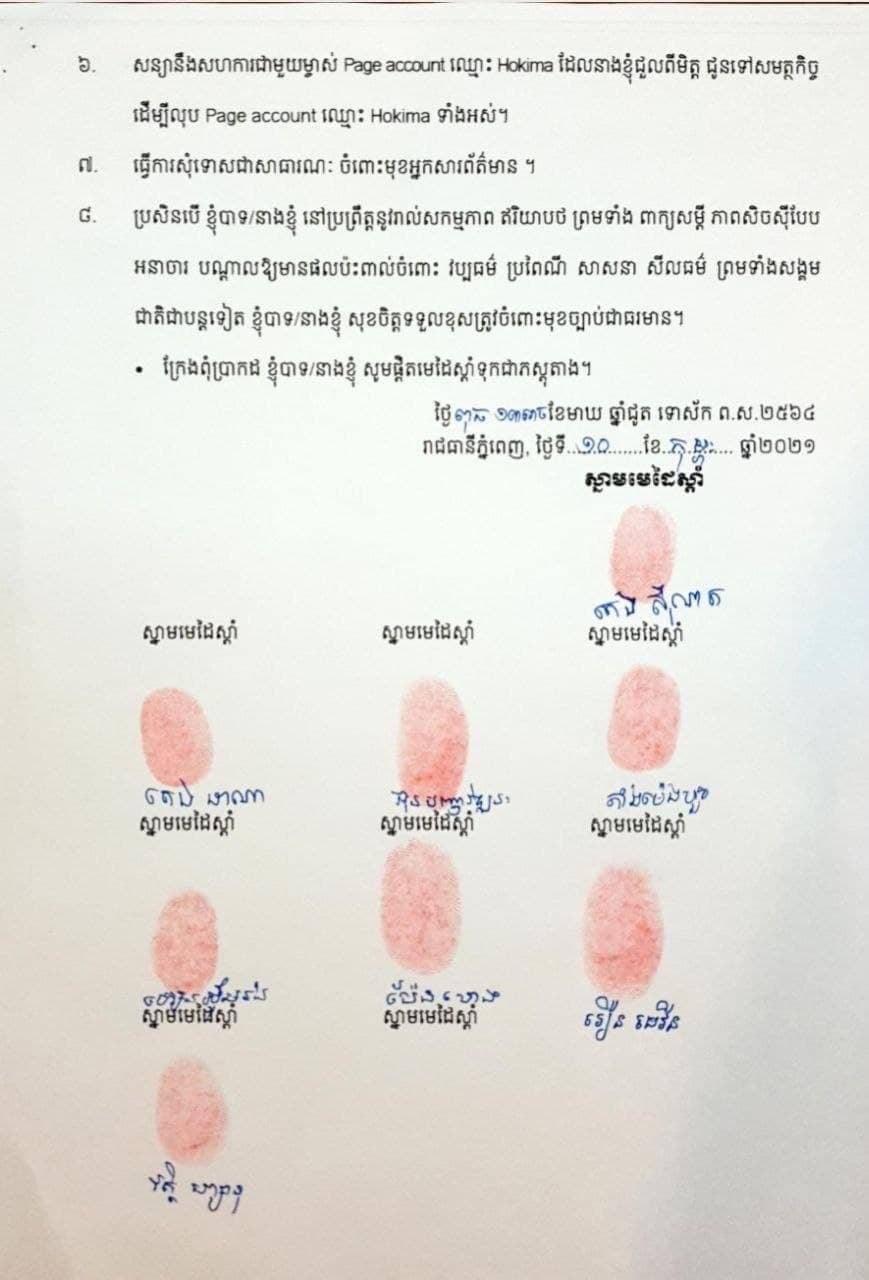 ៦. សន្យានឹងសហការជាមួយម្ចាស់ Page account ឈ្មោះ Hokima ដែលនាងខ្ញុំជួលពីមិត្ត ជូនទៅសមត្ថកិច្ច
ដើម្បីលុប Page account ឈ្មោះ Hokima ទាំងអស់។
៧. ធ្វើការសុំទោសជាសាធារណៈ ចំពោះមុខអ្នកសារព័ត៌មាន ។
៨. ប្រសិនបើ ខ្ញុំបាទ/នាងខ្ញុំ នៅប្រព្រឹត្តនូវរាល់សកម្មភាព ឥរិយាបថ ព្រមទាំង ពាក្យសម្ដី ភាពសិចស៊ីបែប
អនាចារ បណ្ដាលឱ្យមានផលប៉ះពាល់ចំពោះ វប្បធម៌ ប្រពៃណី សាសនា សីលធម៌ ព្រមទាំងសង្គម
ជាតិជាបន្តទៀត ខ្ញុំបាទ/នាងខ្ញុំ សុខចិត្តទទួលខុសត្រូវចំពោះមុខច្បាប់ជាធរមាន។
• ក្រែងពុំប្រាកដ ខ្ញុំបាទ/នាងខ្ញុំ សូមផ្ដិតមេដៃស្ដាំទុកជាភស្ដុតាង។
ថ្ងៃពុធ ខែមាឃ ឆ្នាំជូត ទោស័ក ព.ស.២៥៦៤
រាជធានីភ្នំពេញ, ថ្ងៃទី..១០.......ខែ..កុម្ភៈ.... ឆ្នាំ២០២១
ស្នាមមេដៃស្ដាំ
ស្នាមមេដៃស្ដាំ ស្នាមមេដៃស្ដាំ ស្នាមមេដៃស្ដាំ
ស្នាមមេដៃស្ដាំ ស្នាមមេដៃស្ដាំ ស្នាមមេដៃស្ដាំ
ស្នាមមេដៃស្ដាំ ស្នាមមេដៃស្ដាំ